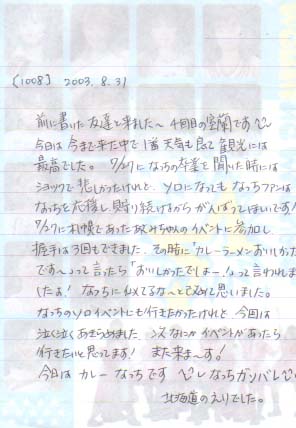 [1008] 2003.8.31
前に書いた友達と来ました〜 4回目の室蘭です
今日は今まで来た中で1番天気も良くて観光には
最高でした。7/27になっちの卒業を聞いた時には
ショックで悲しかったけれど、ソロになってもなっちファンは
なっちを応援し続けるからがんばってほしいです!
7/27に札幌であったなっちみちゃんのイベントに参加し
握手は3回もできました。その時に「カレーラーメンおいしかった
です〜」って言ったら「おいしかったでしょー!」って言われま
したよ! なっちに似てるな〜と改めて思いました。
なっちのソロイベントにも行きたかったけれど 今回は
泣く泣くあきらめました。次なにかイベントがあったら
行きたいと思ってます! また来ま〜す!
今日は カレー なっちです なっちガンバレ
北海道のえりでした。